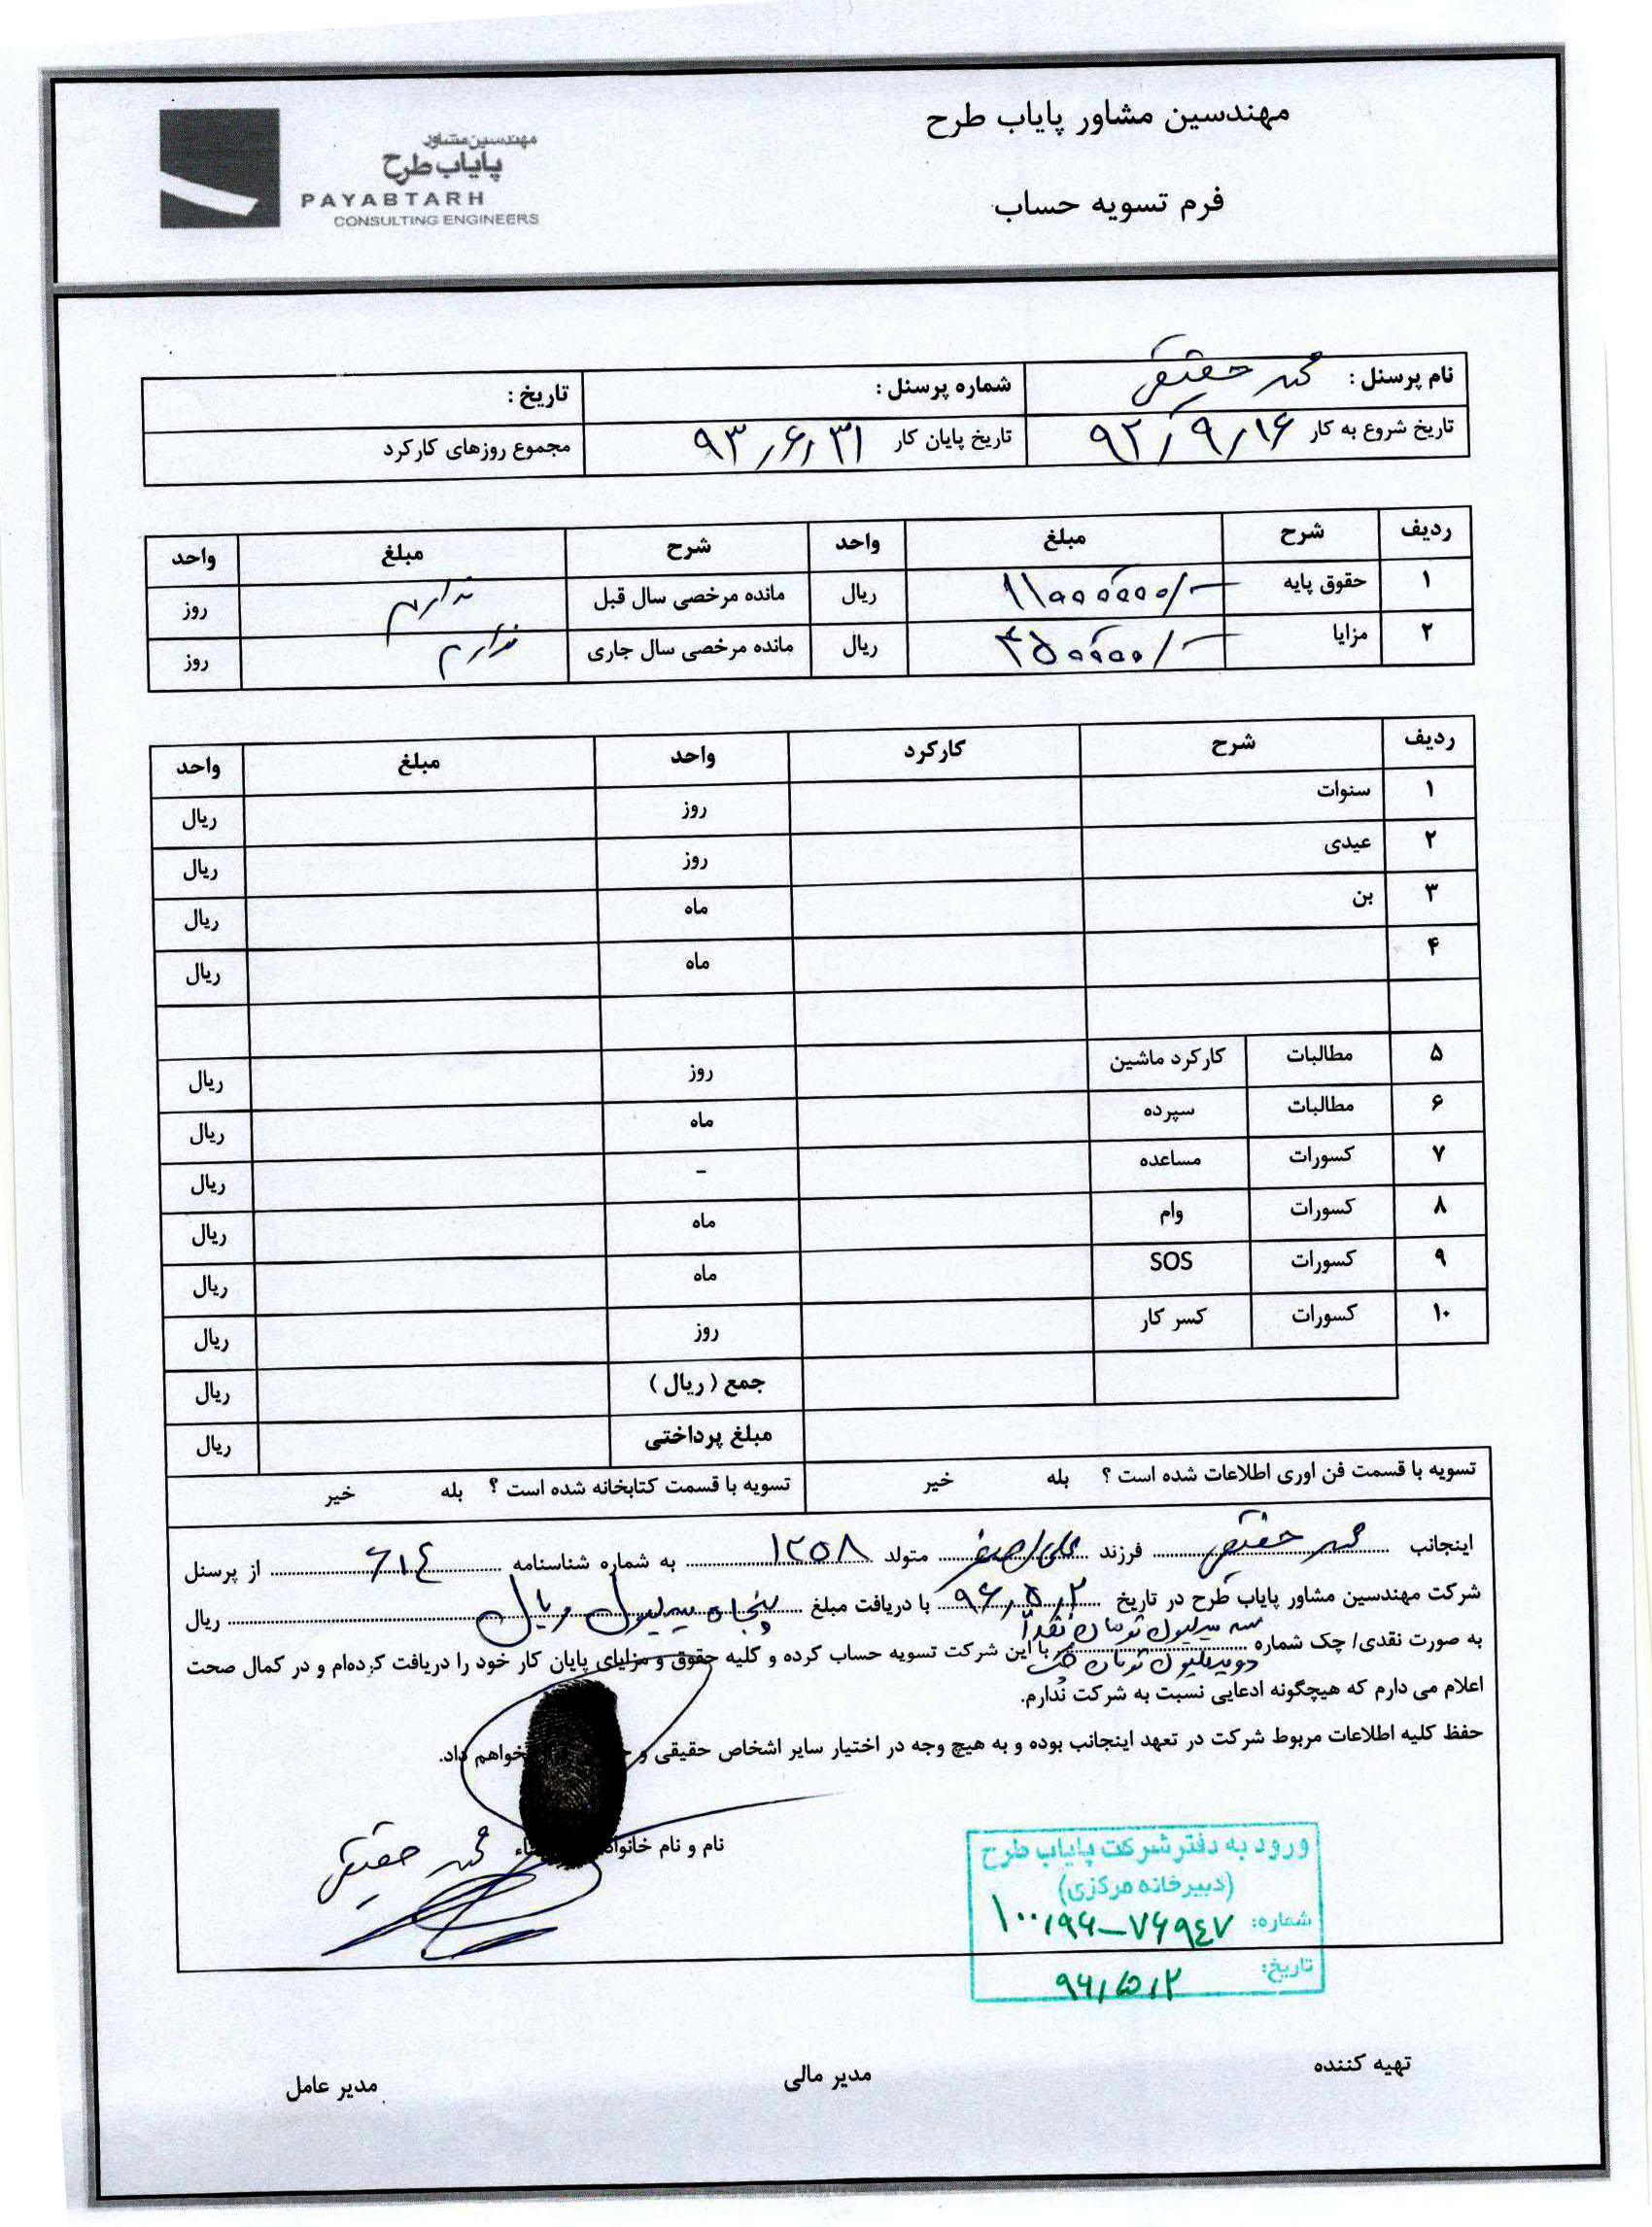 مهندسین مشاور پایاب طرح
فرم تسویه حساب
مهندسین مشاور
پایاب طرح
PAYABTARH
CONSULTING ENGINEERS
نام پرسنل : حقیقی شماره پرسنل : تاریخ :
تاریخ شروع به کار ۹۲/۹/۱۶ تاریخ پایان کار ۹۳/۶/۳۱ مجموع روزهای کارکرد
ردیف شرح مبلغ واحد شرح مبلغ واحد
۱ حقوق پایه ۱۱۰۰۰۰۰۰/- ریال مانده مرخصی سال قبل ندارم روز
۲ مزایا ریال مانده مرخصی سال جاری ندارم روز
ردیف شرح کارکرد واحد مبلغ واحد
۱ سنوات روز ریال
۲ عیدی روز ریال
۳ بن ماه ریال
۴ ماه ریال
۵ مطالبات کارکرد ماشین روز ریال
۶ مطالبات سپرده ماه ریال
۷ کسورات مساعده - ریال
۸ کسورات وام ماه ریال
۹ کسورات SOS ماه ریال
۱۰ کسورات کسر کار روز ریال
جمع ( ریال ) ریال
مبلغ پرداختی ریال
تسویه با قسمت فن اوری اطلاعات شده است ؟ بله خیر تسویه با قسمت کتابخانه شده است ؟ بله خیر
اینجانب حقیقی فرزند علی اصغر متولد ۱۳۵۸ به شماره شناسنامه ۶۱۴ از پرسنل
شرکت مهندسین مشاور پایاب طرح در تاریخ ۹۶/۵/۲ با دریافت مبلغ پنجاه میلیون ریال ریال
سه میلیون تومان نقداً
به صورت نقدی/ چک شماره با این شرکت تسویه حساب کرده و کلیه حقوق و مزایای پایان کار خود را دریافت کرده‌ام و در کمال صحت
دو میلیون تومان چک
اعلام می دارم که هیچگونه ادعایی نسبت به شرکت ندارم.
حفظ کلیه اطلاعات مربوط شرکت در تعهد اینجانب بوده و به هیچ وجه در اختیار سایر اشخاص حقیقی و خواهم داد.
نام و نام خانواد
حقیقی
ورود به دفتر شرکت پایاب طرح
(دبیرخانه مرکزی)
شماره: ۱۰۰/۹۶-۷۶۹۴۷
تاریخ: ۹۶/۵/۲
تهیه کننده مدیر مالی مدیر عامل